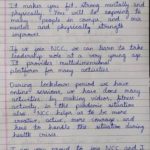 It makes you fit strong mentally and
physically. You will be exposed to
many people in camps, and our
mental and physically strength
improves.
If we join NCC, we can learn to take
leadership role at a very young age.
It provides multidimensional
platform for many activities.
During lockdown period we have
online sessions, we have done many
activities by making videos, fitness
activity, in the pandemic situation
also. NCC helps us to be more
creative, active, more courage, and
how to handle the situation during
health crisis.
to join NCC and I